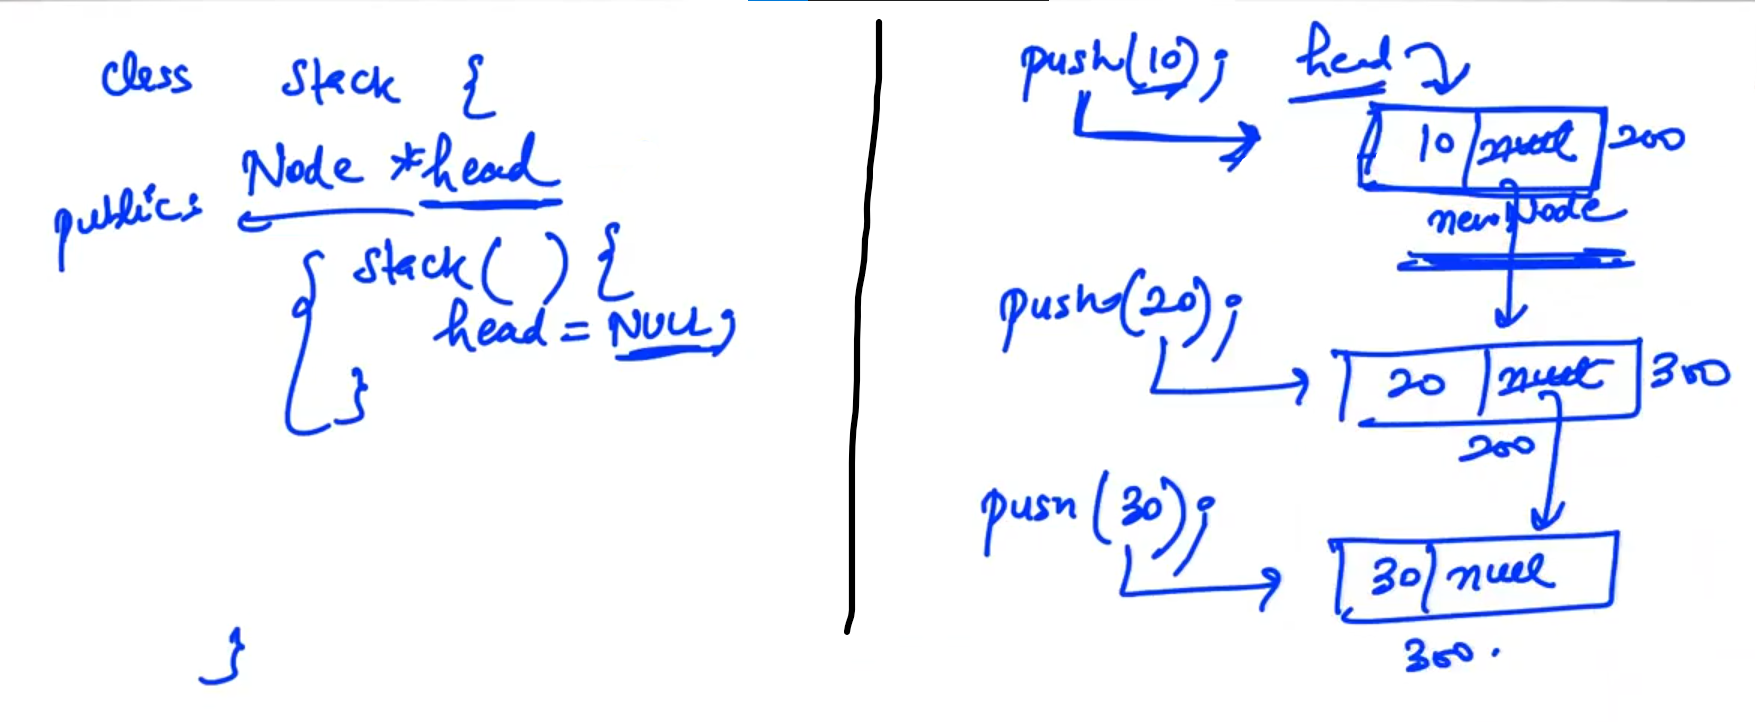 class Stack {
Node *head
public:
Stack( ) {
head = NULL;
}
}
push(10); head
10 null 200
newNode
push(20);
20 null 300
200
push(30);
30 null
300.